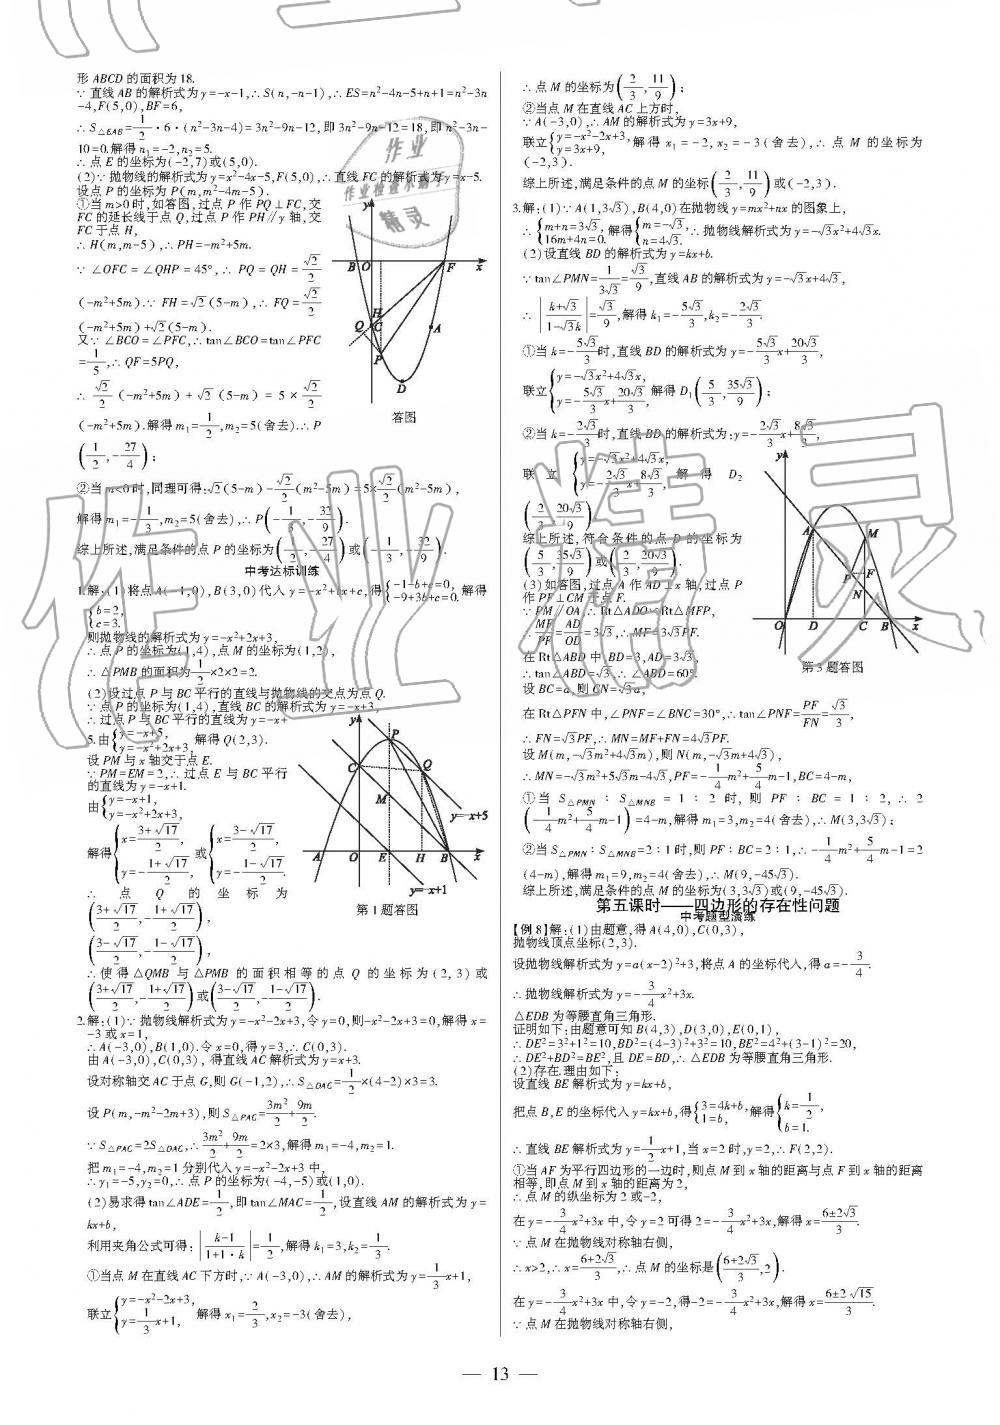 形 ABCD 的面积为 18.
∵ 直线 AB 的解析式为 y=-x-1,∴S(n,-n-1),∴ES=n²-4n-5+n+1=n²-3n
-4,F(5,0),BF=6,
∴S△EAB=1/2·6·(n²-3n-4)=3n²-9n-12,即 3n²-9n-12=18,即 n²-3n-
10=0.解得 n₁=-2,n₂=5.
∴点 E 的坐标为(-2,7)或(5,0).
(2)∵ 抛物线的解析式为 y=x²-4x-5,F(5,0),∴直线 FC 的解析式为 y=x-5.
设点 P 的坐标为 P(m,m²-4m-5).
①当 m>0 时,如答图,过点 P 作 PQ⊥FC,交
FC 的延长线于点 Q,过点 P 作 PH∥y 轴,交
FC 于点 H,
∴H(m,m-5),∴PH=-m²+5m.
∵ ∠OFC=∠QHP=45°,∴ PQ=QH=√2/2
(-m²+5m).∵ FH=√2(5-m),∴ FQ=√2/2
(-m²+5m)+√2(5-m).
又∵ ∠BCO=∠PFC,∴tan∠BCO=tan∠PFC
=1/5,∴QF=5PQ,
∴ √2/2(-m²+5m)+√2(5-m)=5×√2/2
(-m²+5m).解得 m₁=1/2,m₂=5(舍去).∴P
(1/2,-27/4);
②当 m<0 时,同理可得:√2(5-m)-√2/2(m²-5m)=5×√2/2(m²-5m),
解得 m₁=-1/3,m₂=5(舍去),∴P(-1/3,-32/9).
综上所述,满足条件的点 P 的坐标为(1/2,-27/4)或(-1/3,-32/9).
答图
中考达标训练
1.解:(1)将点 A(-1,0),B(3,0)代入 y=-x²+bx+c,得{-1-b+c=0, -9+3b+c=0. 解得
{b=2, c=3.
则抛物线的解析式为 y=-x²+2x+3,
∴点 P 的坐标为(1,4),点 M 的坐标为(1,2),
∴△PMB 的面积为1/2×2×2=2.
(2)设过点 P 与 BC 平行的直线与抛物线的交点为点 Q.
∵点 P 的坐标为(1,4),直线 BC 的解析式为 y=-x+3,
∴过点 P 与 BC 平行的直线为 y=-x+
5.由{y=-x+5, y=-x²+2x+3, 解得 Q(2,3).
设 PM 与 x 轴交于点 E.
∵PM=EM=2,∴过点 E 与 BC 平行
的直线为 y=-x+1.
由{y=-x+1, y=-x²+2x+3,
解得{x=(3+√17)/2, y=-(1+√17)/2 或{x=(3-√17)/2, y=-(1-√17)/2.
∴ 点 Q 的坐标为
((3+√17)/2,-(1+√17)/2),
((3-√17)/2,-(1-√17)/2),
∴使得△QMB 与△PMB 的面积相等的点 Q 的坐标为(2,3)或
((3+√17)/2,-(1+√17)/2)或((3-√17)/2,-(1-√17)/2).
y=-x+5
y=-x+1
第 1 题答图
2.解:(1)∵ 抛物线解析式为 y=-x²-2x+3,令 y=0,则-x²-2x+3=0,解得 x=
-3 或 x=1,
∴A(-3,0),B(1,0).令 x=0,得 y=3,∴C(0,3).
由 A(-3,0),C(0,3),得直线 AC 解析式为 y=x+3.
设对称轴交 AC 于点 G,则 G(-1,2),∴S△DAG=1/2×(4-2)×3=3.
设 P(m,-m²-2m+3),则 S△PAC=3m²/2+9m/2.
∵S△PAC=2S△DAC,∴3m²/2+9m/2=2×3,解得 m₁=-4,m₂=1.
把 m₁=-4,m₂=1 分别代入 y=-x²-2x+3 中,
∴y₁=-5,y₂=0,∴点 P 的坐标为(-4,-5)或(1,0).
(2)易求得 tan∠ADE=1/2,即 tan∠MAC=1/2,设直线 AM 的解析式为 y=
kx+b,
利用夹角公式可得:|(k-1)/(1+1·k)|=1/2,解得 k₁=3,k₂=1/3.
①当点 M 在直线 AC 下方时,∵A(-3,0),∴AM 的解析式为 y=1/3x+1,
联立{y=-x²-2x+3, y=1/3x+1, 解得 x₁=2/3,x₂=-3(舍去),
∴点 M 的坐标为(2/3,11/9);
②当点 M 在直线 AC 上方时,
∵A(-3,0),∴AM 的解析式为 y=3x+9,
联立{y=-x²-2x+3, y=3x+9, 解得 x₁=-2,x₂=-3(舍去),∴点 M 的坐标为
(-2,3).
综上所述,满足条件的点 M 的坐标(2/3,11/9)或(-2,3).
3.解:(1)∵A(1,3√3),B(4,0)在抛物线 y=mx²+nx 的图象上,
∴{m+n=3√3, 16m+4n=0. 解得{m=-√3, n=4√3. ∴抛物线解析式为 y=-√3x²+4√3x.
(2)设直线 BD 的解析式为 y=kx+b.
∵tan∠PMN=1/(3√3)=√3/9,直线 AB 的解析式为 y=-√3x+4√3,
∴|(k+√3)/(1-√3k)|=√3/9,解得 k₁=-5√3/3,k₂=-2√3/3.
①当 k=-5√3/3时,直线 BD 的解析式为 y=-5√3/3x+20√3/3,
联立{y=-√3x²+4√3x, y=-5√3/3x+20√3/3, 解得 D₁(5/3,35√3/9);
②当 k=-2√3/3时,直线 BD 的解析式为:y=-2√3/3x+8√3/3,
联立{y=-√3x²+4√3x, y=-2√3/3x+8√3/3, 解得 D₂
(2/3,20√3/9).
综上所述,符合条件的点 D 的坐标为
(5/3,35√3/9)或(2/3,20√3/9).
(3)如答图,过点 A 作 AD⊥x 轴,过点 P
作 PF⊥CM 于点 F.
∵PM∥OA,∴Rt△ADO∽Rt△MFP,
∴MF/PF=AD/OD=3√3,∴MF=3√3PF.
在 Rt△ABD 中,BD=3,AD=3√3,
∴tan∠ABD=√3,∴∠ABD=60°.
设 BC=a,则 CN=√3a,
在 Rt△PFN 中,∠PNF=∠BNC=30°,∴tan∠PNF=PF/FN=√3/3,
∴FN=√3PF,∴MN=MF+FN=4√3PF.
设 M(m,-√3m²+4√3m),则 N(m,-√3m+4√3),
∴MN=-√3m²+5√3m-4√3,PF=-1/4m²+5/4m-1,BC=4-m,
①当 S△PMN∶S△MNB=1∶2 时,则 PF∶BC=1∶2,∴2
(-1/4m²+5/4m-1)=4-m,解得 m₁=3,m₂=4(舍去),∴M(3,3√3);
②当 S△PMN∶S△MNB=2∶1 时,则 PF∶BC=2∶1,∴-1/4m²+5/4m-1=2
(4-m),解得 m₁=9,m₂=4(舍去),∴M(9,-45√3).
综上所述,满足条件的点 M 的坐标为(3,3√3)或(9,-45√3).
第 3 题答图
第五课时——四边形的存在性问题
中考题型演练
【例 8】解:(1)由题意,得 A(4,0),C(0,3),
抛物线顶点坐标(2,3).
设抛物线解析式为 y=a(x-2)²+3,将点 A 的坐标代入,得 a=-3/4.
∴抛物线解析式为 y=-3/4x²+3x.
△EDB 为等腰直角三角形.
证明如下:由题意可知 B(4,3),D(3,0),E(0,1),
∴DE²=3²+1²=10,BD²=(4-3)²+3²=10,BE²=4²+(3-1)²=20,
∴DE²+BD²=BE²,且 DE=BD,∴△EDB 为等腰直角三角形.
(2)存在.理由如下:
设直线 BE 解析式为 y=kx+b,
把点 B,E 的坐标代入 y=kx+b,得{3=4k+b, 1=b, 解得{k=1/2, b=1.
∴直线 BE 解析式为 y=1/2x+1,当 x=2 时,y=2,∴F(2,2).
①当 AF 为平行四边形的一边时,则点 M 到 x 轴的距离与点 F 到 x 轴的距离
相等,即点 M 到 x 轴的距离为 2,
∴点 M 的纵坐标为 2 或-2,
在 y=-3/4x²+3x 中,令 y=2 可得 2=-3/4x²+3x,解得 x=(6±2√3)/3.
∵点 M 在抛物线对称轴右侧,
∴x>2,∴x=(6+2√3)/3,∴点 M 的坐标是((6+2√3)/3,2).
在 y=-3/4x²+3x 中,令 y=-2,得-2=-3/4x²+3x,解得 x=(6±2√15)/3.
∵点 M 在抛物线对称轴右侧,
— 13 —